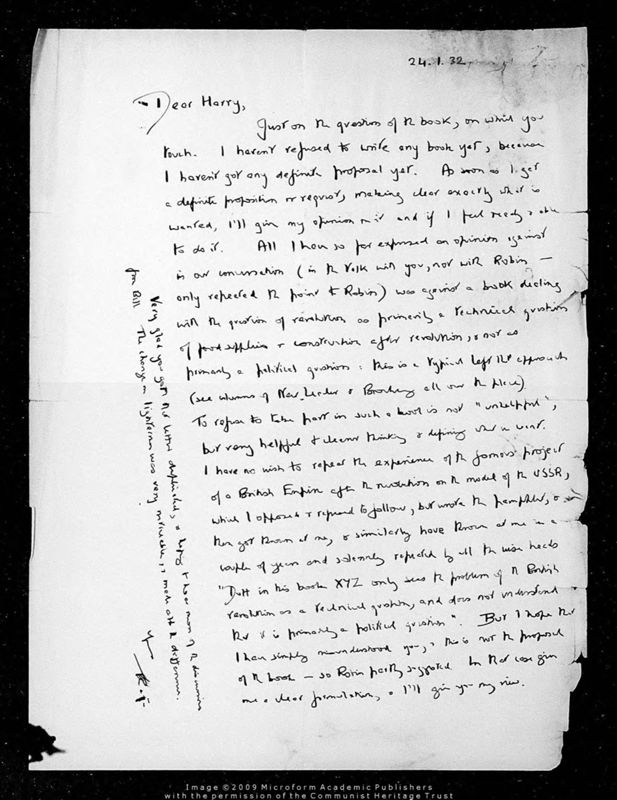 24.1.32
Dear Harry,
Just on the question of the book, on which you
touch. I haven't refused to write any book yet, because
I haven't got any definite proposal yet. As soon as I get
a definite proposition or request, making clear exactly what is
wanted, I'll give my opinion on it and if I feel ready & able
to do it. All I have so far expressed an opinion against
in our conversation (in the talk with you, not with Robin —
only repeated the point to Robin) was against a book dealing
with the question of revolution as primarily a technical question
of food supplies & construction after revolution, & not as
primarily a political question: this is a typical left approach
(see columns of New Leader & Brockway all over the place)
To refuse to take part in such a book is not "unhelpful",
but very helpful to clearer thinking & defining what we want.
I have no wish to repeat the experience of the famous project
of a British Empire after the revolution on the model of the USSR,
which I opposed & refused to follow, but wrote the pamphlet, &
then got thrown at me, & similarly have thrown at me in a
couple of years and solemnly repeated by all the wise heads
"Dutt in his book XYZ only sees the problem of the British
revolution as a technical question, and does not understand
that it is primarily a political question". But I hope that
I have simply misunderstood you, & this is not the proposal
of the book — so Robin partly suggested. In that case give
me a clear formulation, & I'll give you my view.
Very glad you got the letter duplicated, & hoping to hear more of the discussion
from Bill. The change in was very & made all the difference.
Image ©2009 Microform Academic Publishers
with the permission of the Communist Heritage Trust